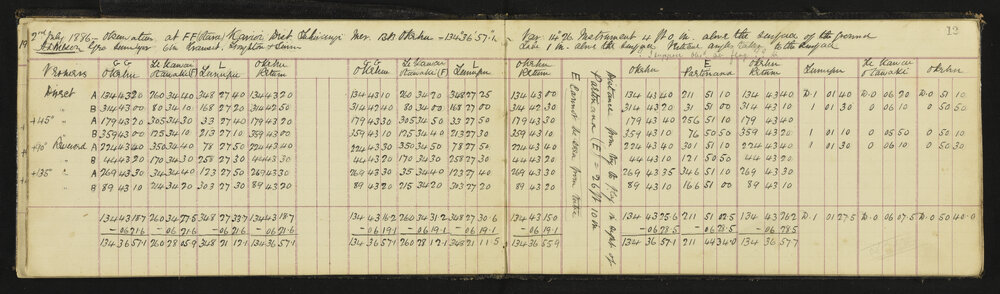 2nd July 1886 - Observations at FF (Otara) Mer. BB Okehu = 134·36'57"·1
Var 14°26 Instrument 4 ft 0 in. above the surface of the ground
13
19
A. Nelson Govt Surveyor 6 in Transit, Troughton & Simms
1 in. above the surface Vertical angles to the
Verniers
G G Okehu
Te Kawau Otawaki (F)
L Lunupu
Okehu Return
G G Okehu
Te Kawau Otawaki (F)
L Lunupu
Okehu Return
Okehu
E Partonana
Okehu Return
Lunupu
Te Kawau Otawaki
Okehu
Direct A 134 43 20 260 34 40 348 27 40 134 43 20 134 43 10 260 34 20 348 27 25 134 43 00 134 43 40 211 51 10 134 43 40 D·1 01 40 D·0 06 20 D·0 51 10
B 314 42 40 80 34 10 168 27 20 314 42 50 314 42 40 80 34 00 168 27 00 314 43 00 314 43 20 31 51 00 314 43 10 1 01 30 0 06 10 0 50 50
+45° " A 179 43 20 305 34 30 33 27 40 179 43 20 179 43 30 305 34 50 33 27 50 179 43 10 179 43 40 256 51 10 179 43 40
B 359 43 10 125 34 10 213 27 10 359 43 00 359 43 10 125 34 40 213 27 30 359 43 10 359 43 10 76 50 50 359 43 20 1 01 10 0 05 50 0 51 10
+90° Reversed A 224 43 40 350 34 40 78 27 50 224 43 40 224 43 30 350 34 50 78 27 50 224 43 20 224 43 40 301 51 10 224 43 40 1 01 30 0 06 10 0 50 30
B 44 43 20 170 34 30 258 27 30 44 43 30 44 43 20 170 34 30 258 27 30 44 43 20 44 43 10 121 50 50 44 43 20
+135° " A 269 43 30 35 34 40 123 27 50 269 43 30 269 43 30 35 34 40 123 27 40 269 43 30 269 43 35 346 51 10 269 43 30
B 89 43 10 214 34 20 303 27 30 89 43 20 89 43 20 215 34 20 303 27 20 89 43 20 89 43 10 166 51 00 89 43 10
Distance from Try to Flag in night of Partonana (E) = 26 ft 10 in
E cannot be seen from
134 43 18·7 260 34 27·5 348 27 33·7 134 43 18·7 134 43 16·2 260 34 31·2 348 27 30·6 134 43 15·0 134 43 25·6 211 51 02·5 134 43 26·2 D·1 01 27·5 D·0 06 07·5 D·0 50 40·0
-06 21·6 -06 21·6 -06 21·6 -06 19·1 -06 19·1 -06 28·5 -06 28·5 -06 28·5
134 36 57·1 260 28 05·9 348 21 12·1 134 36 57·1 134 36 57·1 260 28 12·1 348 21 11·5 134 36 55·9 134 36 57·1 211 44 34·0 134 36 57·7